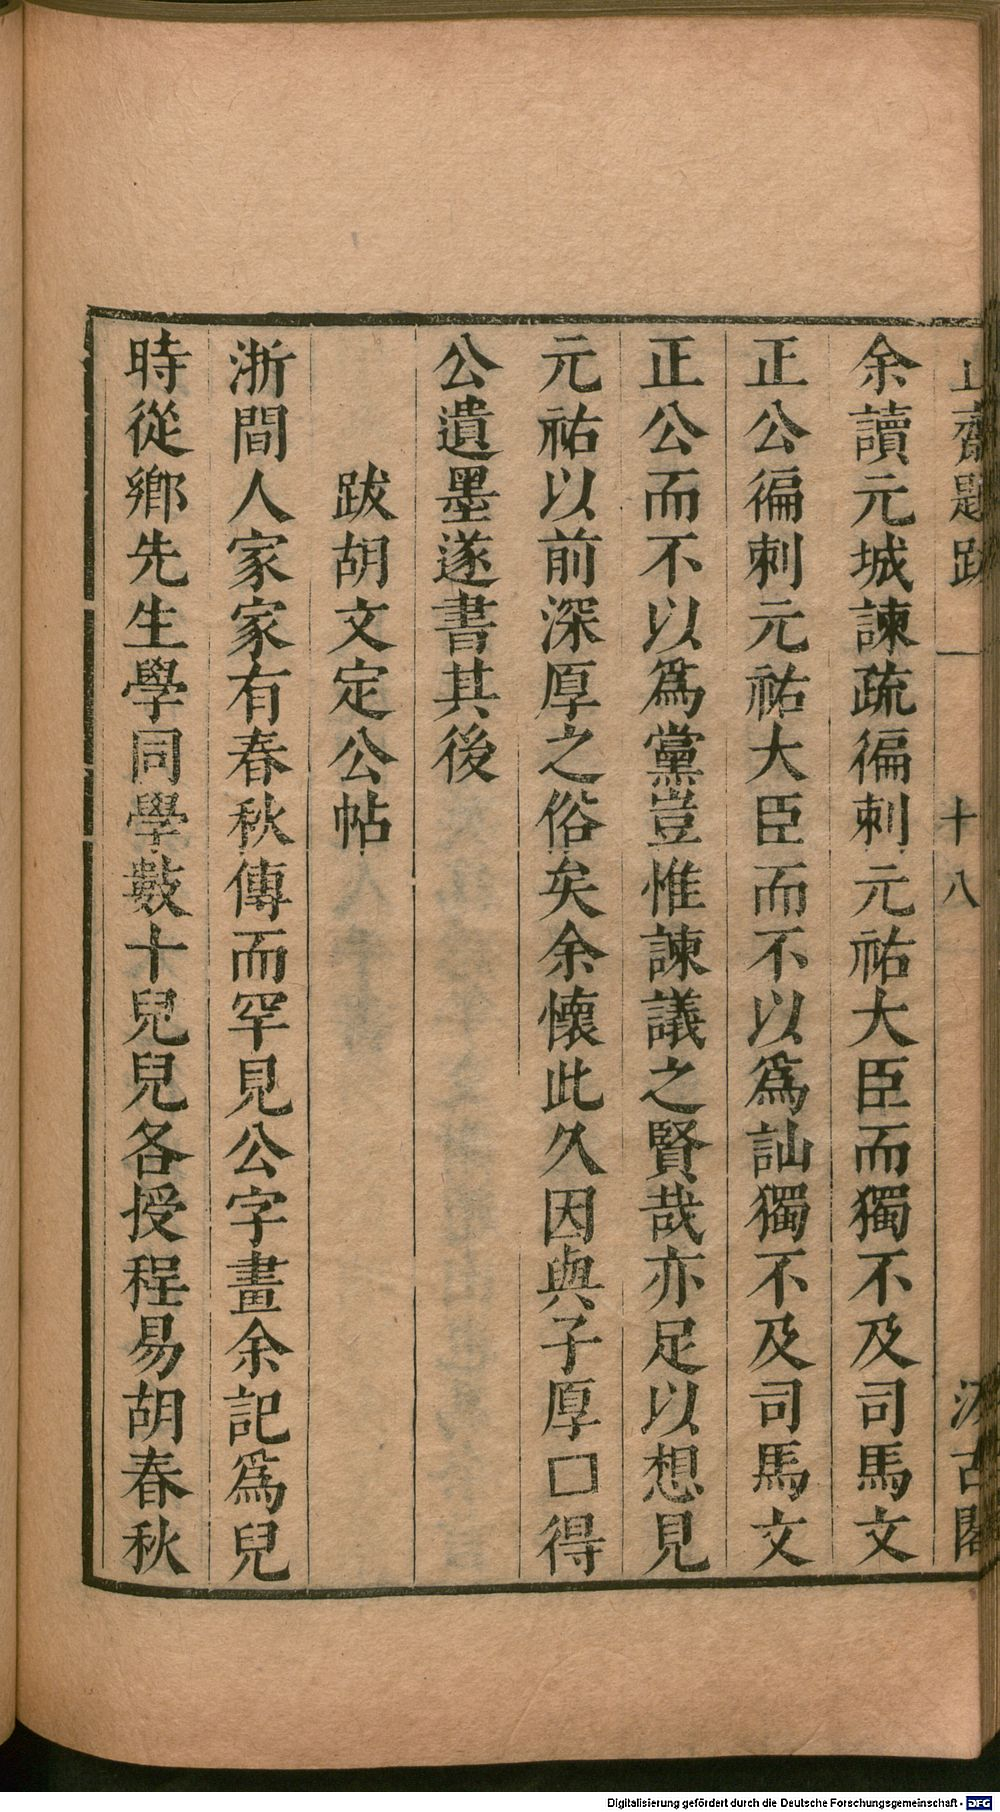 止齋題跋 一 十八 汲古閣
余讀元城諫疏徧刺元祐大臣而獨不及司馬文
正公徧刺元祐大臣而不以爲訕獨不及司馬文
正公而不以爲黨豈惟諫議之賢哉亦足以想見
元祐以前深厚之俗矣余懷此久因與子厚□得
公遺墨遂書其後
跋胡文定公帖
浙間人家家有春秋傳而罕見公字畫余記爲兒
時從鄉先生學同學數十兒兒各授程易胡春秋
Digitalisierung gefördert durch die Deutsche Forschungsgemeinschaft - DFG